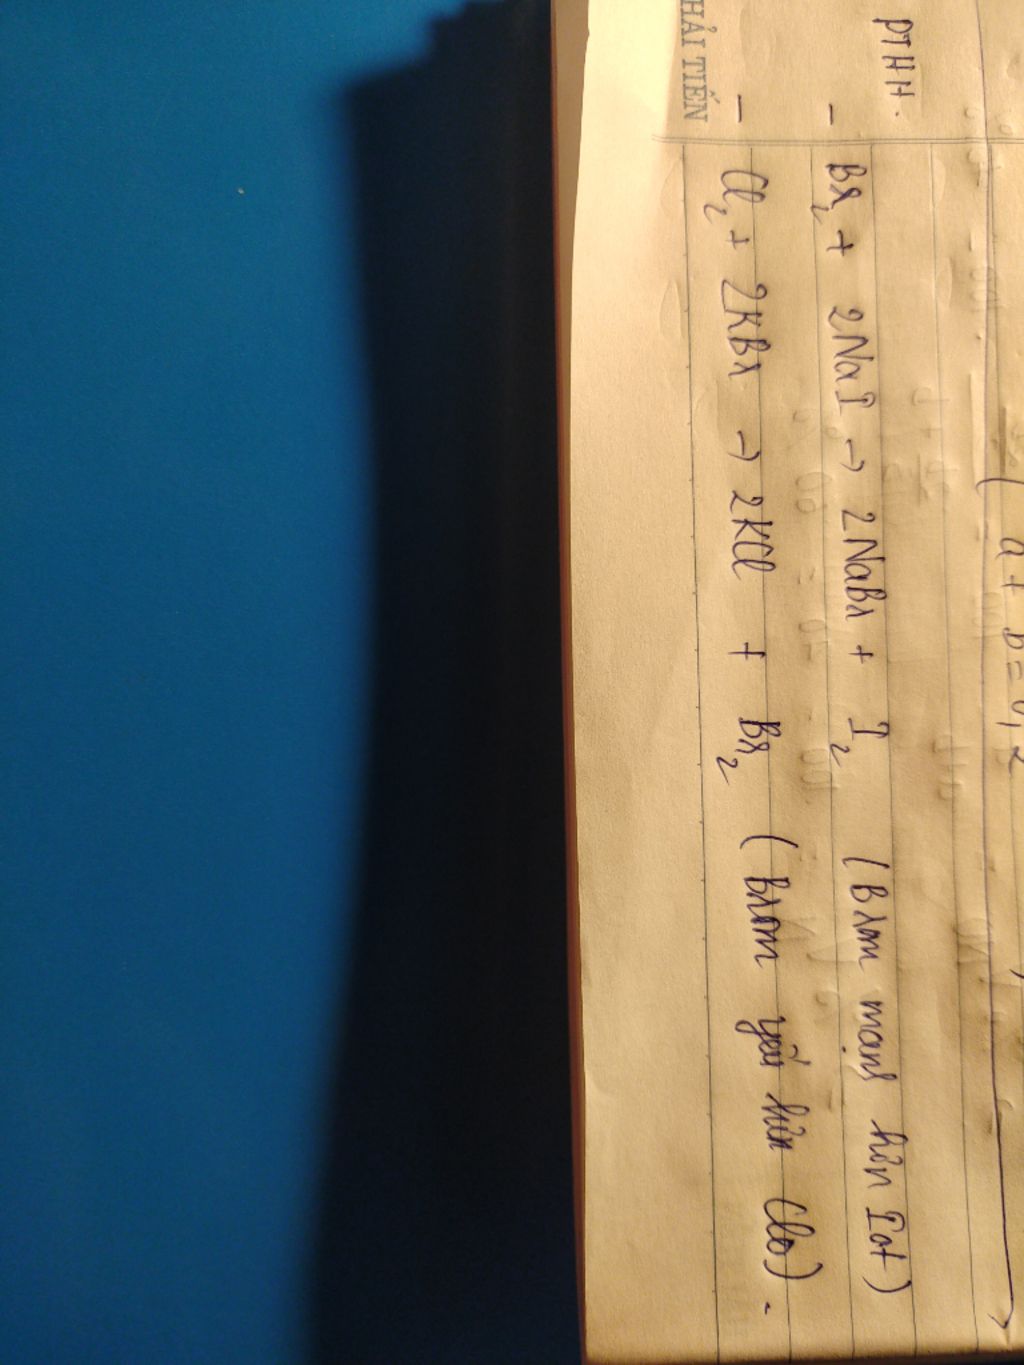 ( a + b = 0,2
PTHH.
- Br₂ + 2NaI → 2NaBr + I₂ (Brom mạnh hơn Iot)
- Cl₂ + 2KBr → 2KCl + Br₂ (Brom yếu hơn Clo).
HẢI TIẾN